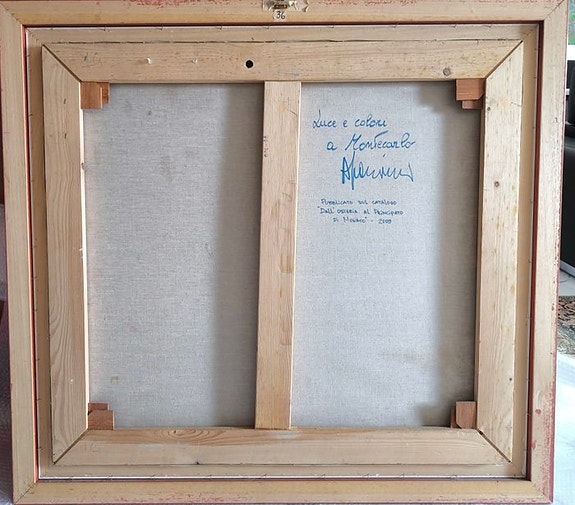 36
Luce e colori
a Montecarlo
PUBBLICATO SUL CATALOGO
AL PRINCIPATO
DI MONACO" - 2008